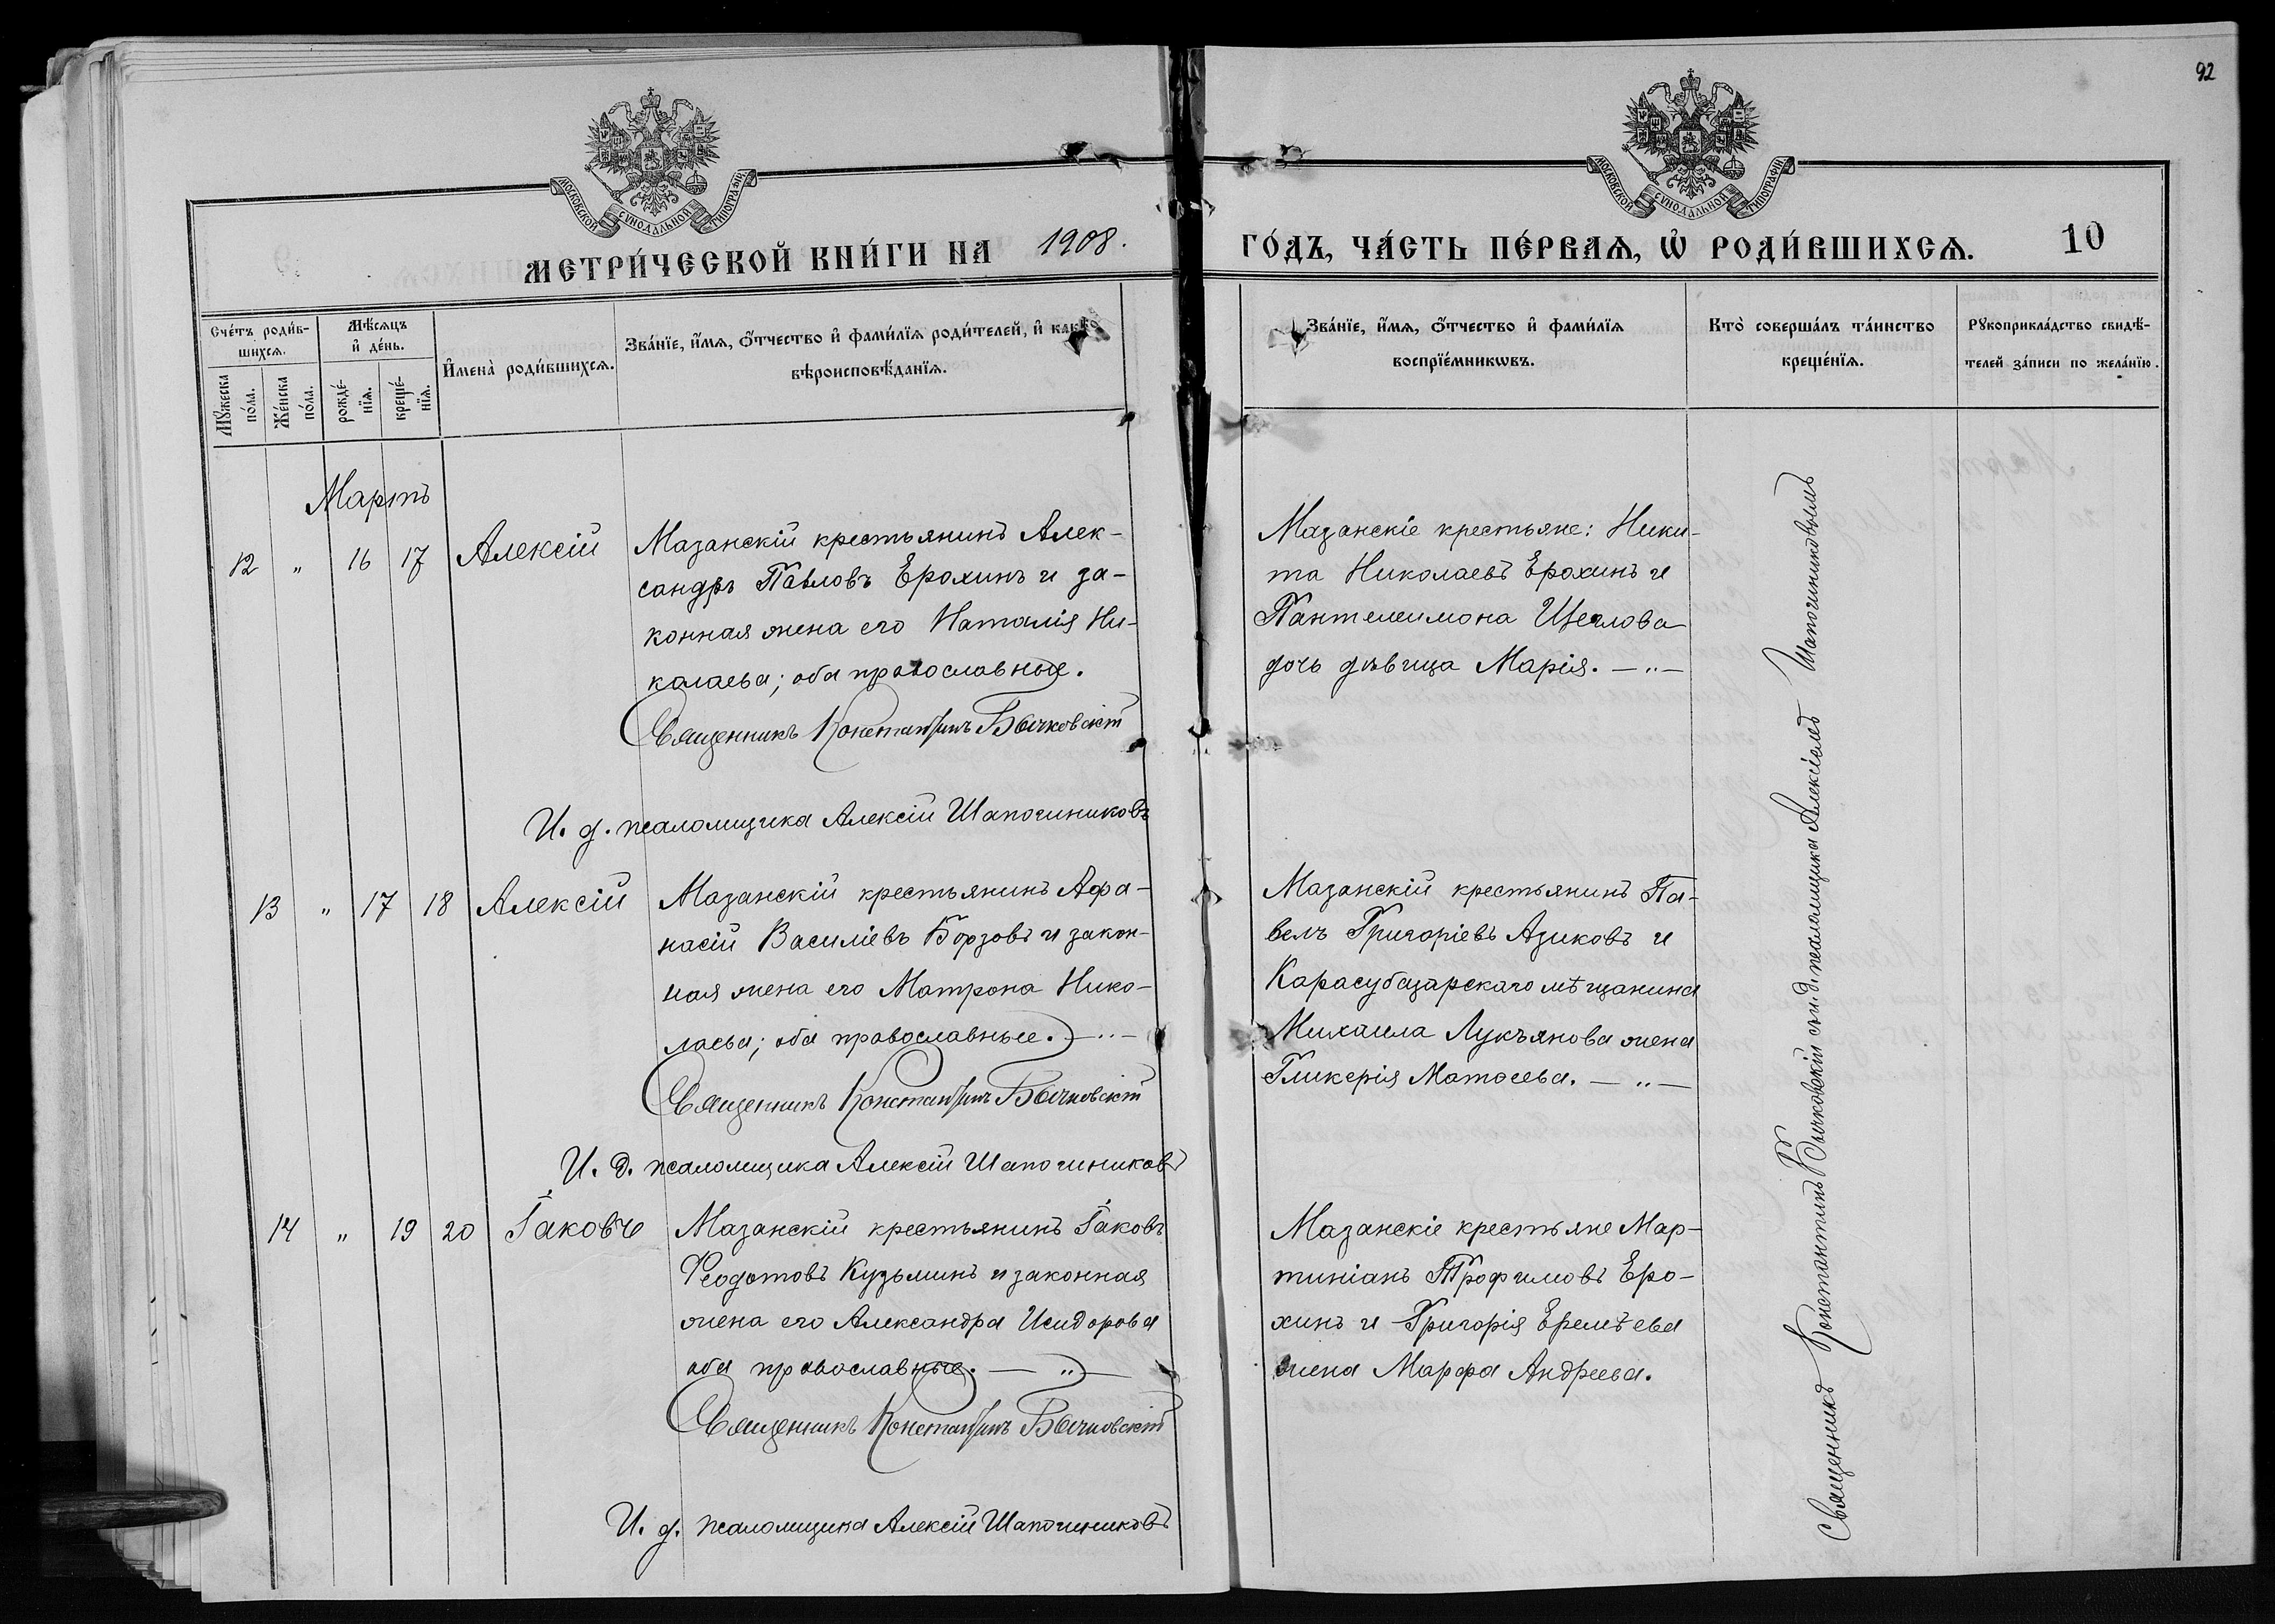 92
МОСКОВСКОЙ СѴНОДАЛЬНОЙ ТИПОГРАФІИ
МОСКОВСКОЙ СѴНОДАЛЬНОЙ ТИПОГРАФІИ
МЕТРИ́ЧЕСКОЙ КНИ́ГИ НА 1908.
ГО́ДЪ, ЧА́СТЬ ПЕ́РВАѦ, Ѡ҆ РОДИ́ВШИХСѦ. 10
Сче́тъ роди́в-
шихсѧ.
Мѣ́сѧцъ
и҆ де́нь.
Мꙋ́жеска
по́ла.
Же́нска
по́ла.
рожде́-
нїѧ.
креще́-
нїѧ.
И҆мена̀ роди́вшихсѧ.
Зва́нїе, и҆́мѧ, ѻ҆́тчество и҆ фами́лїѧ роди́телей, и҆ како́го
вѣроисповѣ́данїѧ.
Зва́нїе, и҆́мѧ, ѻ҆́тчество и҆ фами́лїѧ
воспрїе́мникѡвъ.
Кто̀ соверша́лъ та́инство
креще́нїѧ.
Рꙋкоприкла́дство свидѣ́-
телей за́писи по жела́нїю.
Мартъ
12 " 16 17 Алексій
Мазанскій крестьянинъ Алек-
сандръ Павловъ Ерохинъ и за-
конная жена его Наталія Ни-
колаева; оба православные.
Священникъ Константинъ Бычковскій
И. д. псаломщика Алексій Шапочниковъ
Мазанскіе крестьяне: Ники-
та Николаевъ Ерохинъ и
Пантелеимона Щеглова
дочь дѣвица Марія. — " —
13 " 17 18 Алексій
Мазанскій крестьянинъ Афа-
насій Василіевъ Борзовъ и закон-
ная жена его Матрона Нико-
лаева; оба православные. — " —
Священникъ Константинъ Бычковскій
И. д. псаломщика Алексій Шапочниковъ
Мазанскій крестьянинъ Па-
велъ Григоріевъ Азиковъ и
Карасубазарскаго мѣщанина
Михаила Лукъянова жена
Гликерія Матѳеева. — " —
14 " 19 20 Іаковъ
Мазанскій крестьянинъ Іаковъ
Ѳеодотовъ Кузьминъ и законная
жена его Александра Исидорова
оба православные. — " —
Священникъ Константинъ Бычковскій
И. д. псаломщика Алексій Шапочниковъ
Мазанскіе крестьяне Мар-
тиніанъ Трофимовъ Еро-
хинъ и Григорія Еремѣева
жена Марфа Андреева.
Священникъ Константинъ Бычковскій съ и. д. псаломщика Алексіемъ Шапочниковымъ